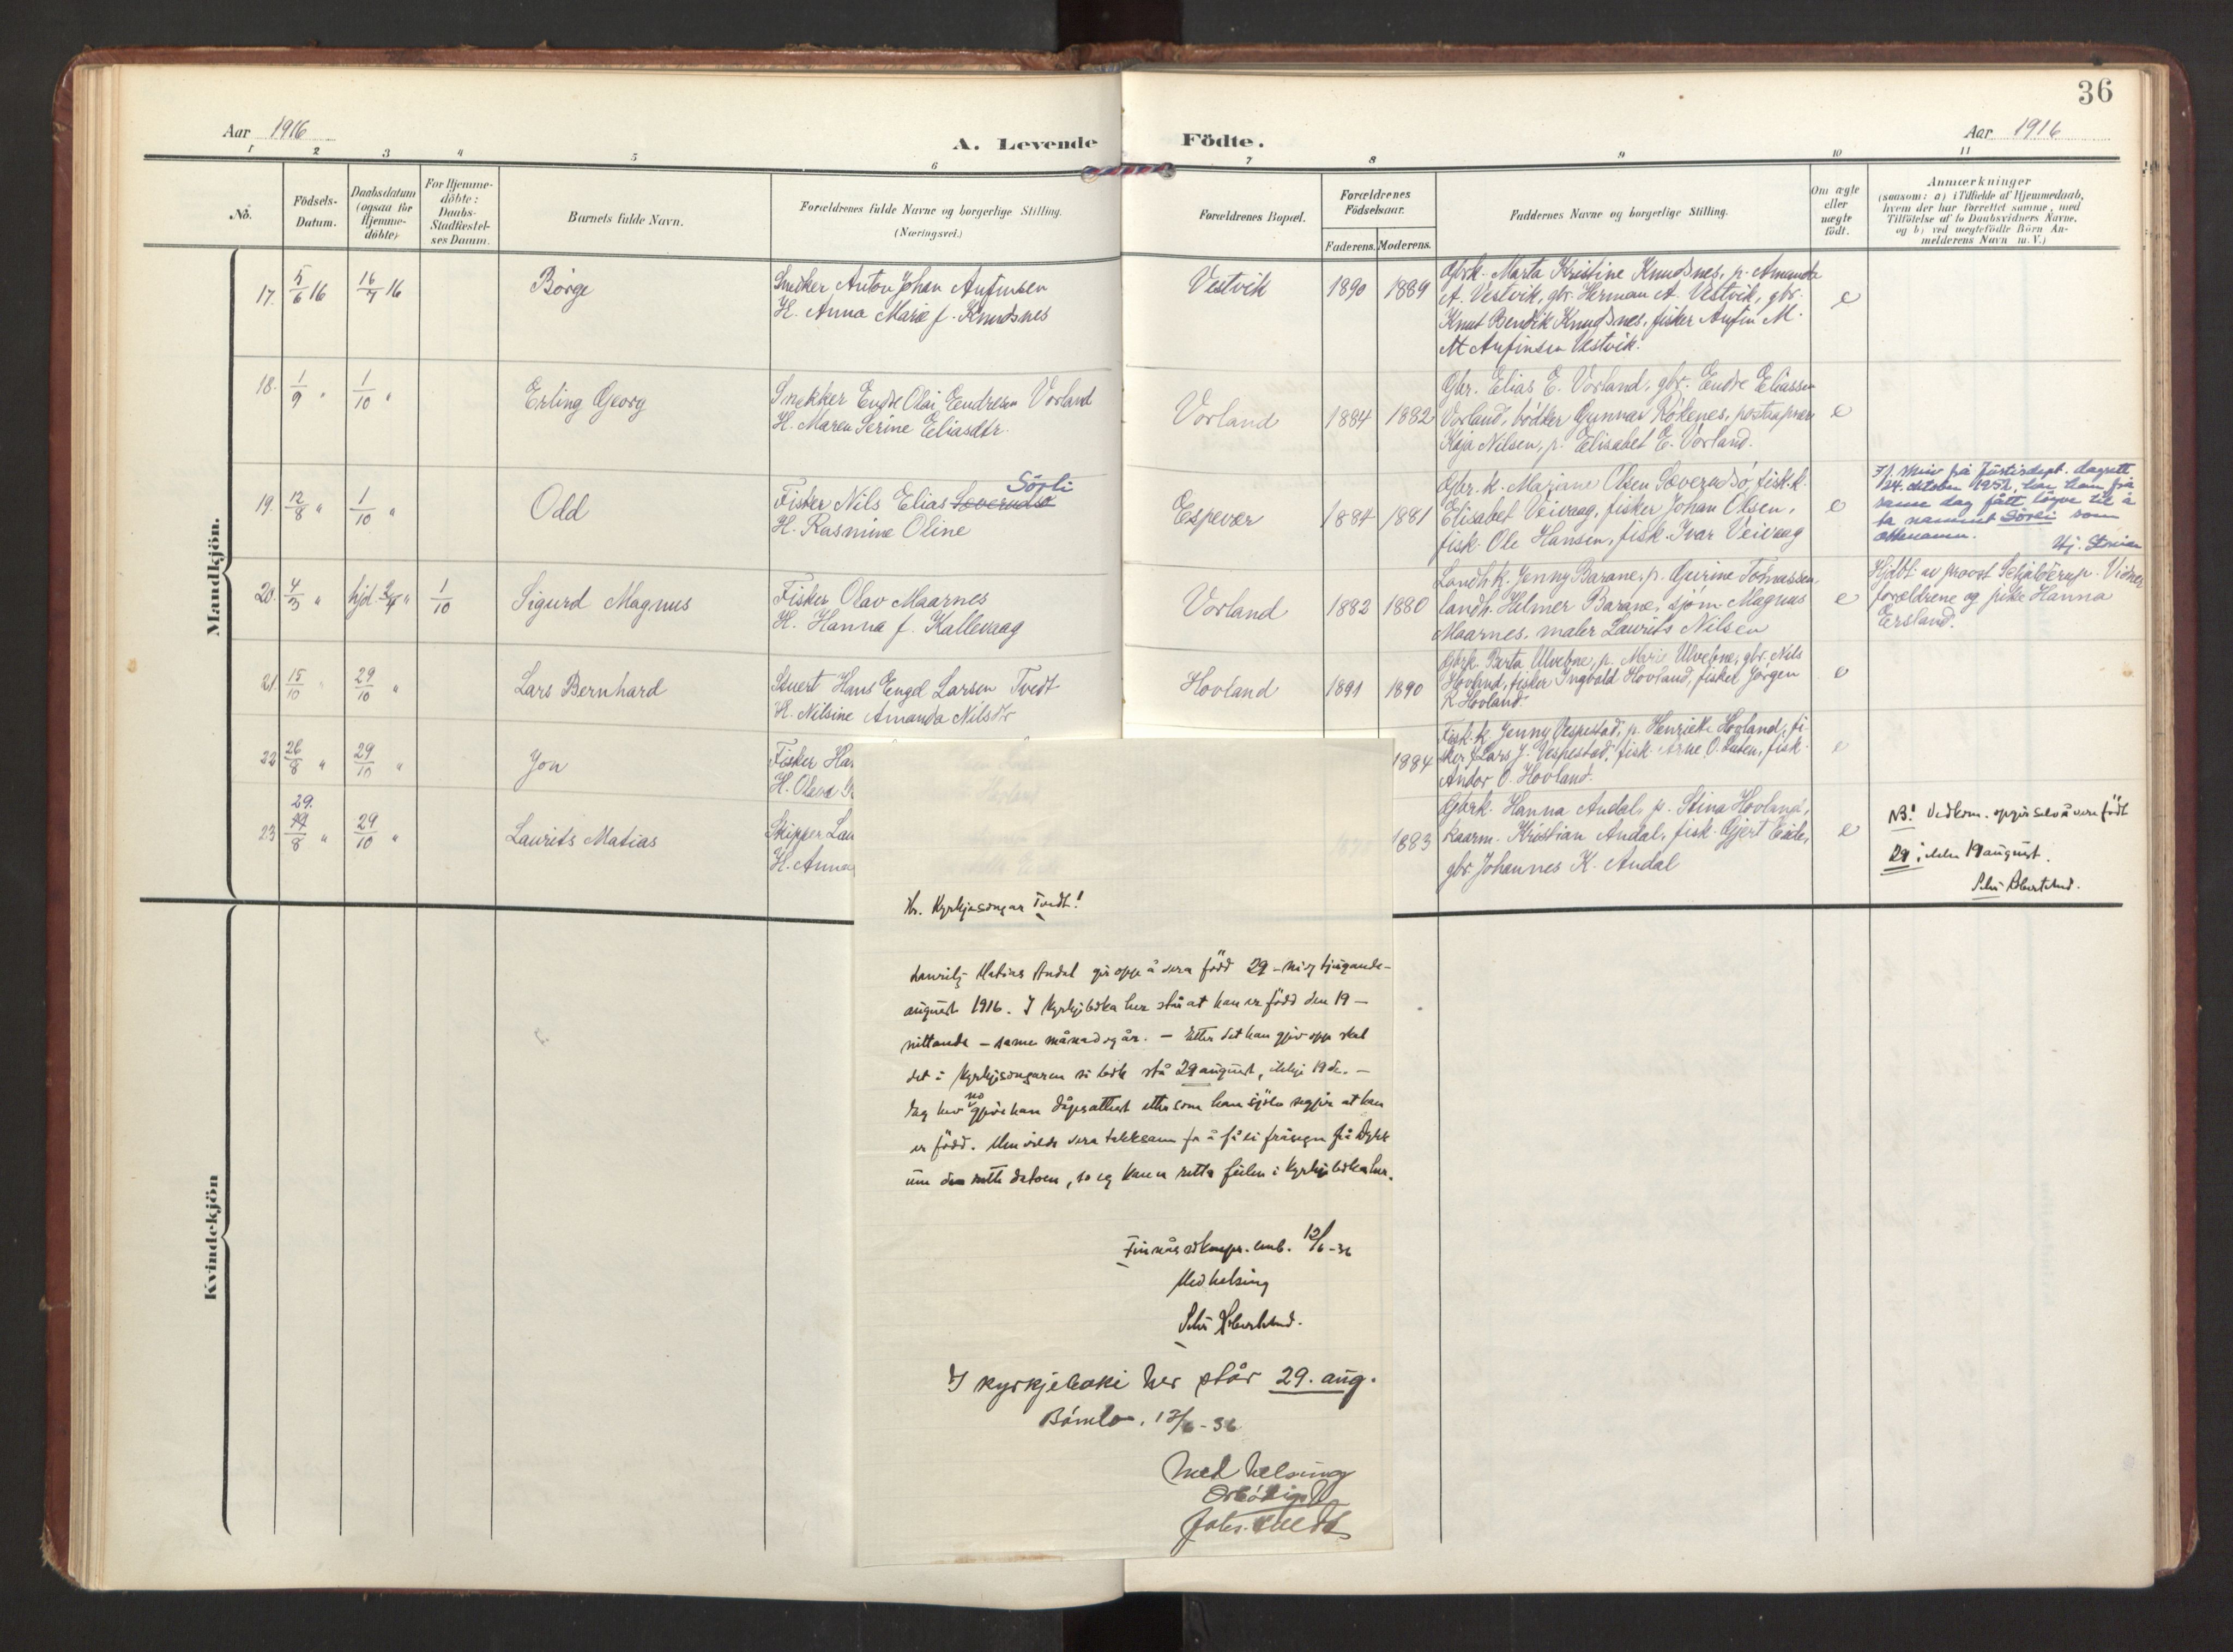 36
Aar 1916
A. Levende
Födte.
Aar 1916
1 2 3 4 5 6 7 8 9 10 11
No.
Födsels-
Datum.
Daabsdatum
(ogsaa for
Hjemme-
döbte)
For Hjemme-
döbte:
Daabs-
Stadfæstel-
ses Datum.
Barnets fulde Navn.
Forældrenes fulde Navne og borgerlige Stilling.
(Næringsvei.)
Forældrenes Bopæl.
Forældrenes
Födselsaar.
Faderens. Moderens.
Faddernes Navne og borgerlige Stilling.
Om ægte
eller
uægte
födt.
Anmærkninger
(saasom: a) i Tilfælde af Hjemmedaab,
hvem der har forrettet samme, med
Tilföielse af to Daabsvidners Navne,
og b) ved uægtefödte Börn An-
melderens Navn m. V.)
Mandkjön.
17. 5/6 16 16/7 16 Börge
Snedker Anton Johan Anfinsen
H. Anna Marie f. Knudsnes
Vestvik 1890 1889
Gbrk. Marta Kristine Knudsnes, p. Amanda
A. Vestvik, gbr. Herman A. Vestvik, gbr.
Knut Bendik Knudsnes, fisker Anfin M.
M Anfinsen Vestvik.
e
18. 1/9 " 1/10 " Erling Georg
Snekker Endre Olai Endresen Vorland
H. Maren Serine Eliasdtr.
Vorland 1884 1882
Gbr. Elias E. Vorland, gbr. Endre Eliassen
Vorland, bödker Gunnar Rökenes,
Kaja Nilsen, p. Elisabet E. Vorland.
e
19. 12/8 " 1/10 " Odd
Fisker Nils Elias Soverudsö Sörli
H. Rasmine Oline
Espevær 1884 1881
Gbr. k. Mariane Olsen Soverudsö, fisk. k.
Elisabet Veivaag, fisker Johan Olsen,
fisk. Ole Hansen, fisk. Ivar Veivaag
e
Fl. skriv frå Justisdept. dagsett
24. oktober 1952, har han frå
same dag fått löyve til å
ta namnet Sörli som
ættenamn.
20. 4/3 " hjd. 3/4 " 1/10 Sigurd Magnus
Fisker Olav Maarnes
H. Hanna f. Kallevaag
Vorland 1882 1880
Landh. k. Jenny Barane, p. Gurine Tomassen,
landh. Helmer Barane, sjöm. Magnus
Maarnes, maler Laurits Nilsen
e
Hjdbt. av provst Schjelderup. Vidner
forældrene og pike Hanna
Ersland.
21. 15/10 " 29/10 " Lars Bernhard
Stuert Hans Engel Larsen Tvedt
H. Nilsine Amanda Nilsdtr
Hovland 1891 1890
Gbrk. Berta Ulvebne, p. Marie Ulvebne, gbr. Nils
Hovland, fisker Ingvald Hovland, fisker Jörgen
R Hovland
e
22 26/8 " 29/10 " Jon
Fisker Han
H. Olava
1884
Fisk. k. Jenny Vespestad, p. Henriette Hovland, fi-
sker Lars J. Vespestad, fisk. Arne O. Laten, fisk.
Andor O. Hovland.
e
23 29. 19/8 " 29/10 " Laurits Matias
Skipper Lau
H. Anna
1883
Gbrk. Hanna Andal, p. Stina Hovland,
kaarm. Kristian Andal, fisk. Gjert Eide,
gbr. Johannes K. Andal
e
NB! Vedkom. oppgir selv å vere födt
29 ikkje 19 august.
Kvindekjön
Hr. Kyrkjesongar Tvedt!
Lauritz Matias Andal gir opp å vera född 29 – ni og tjugande –
august 1916. I Kyrkjeboka her står at han er född den 19 –
nittande – same månad og år. – Etter det han gjev opp skal
det i Kyrkjesongaren si bok stå 29 august, ikkje 19de. –
Eg hev no gjeve han dåpsattest etter som han sjölv segjer at han
er född. Men vilde vera takksam for å få ei fråsegn frå Dykk
um den rette datoen, so eg kann retta feilen i Kyrkjeboka her.
Finnås sokneprr. emb. 12/6 – 36
Med helsing
I kyrkjeboki her står 29. aug.
Bömlo. 12/6 – 36
Med helsing
Johs. Tvedt